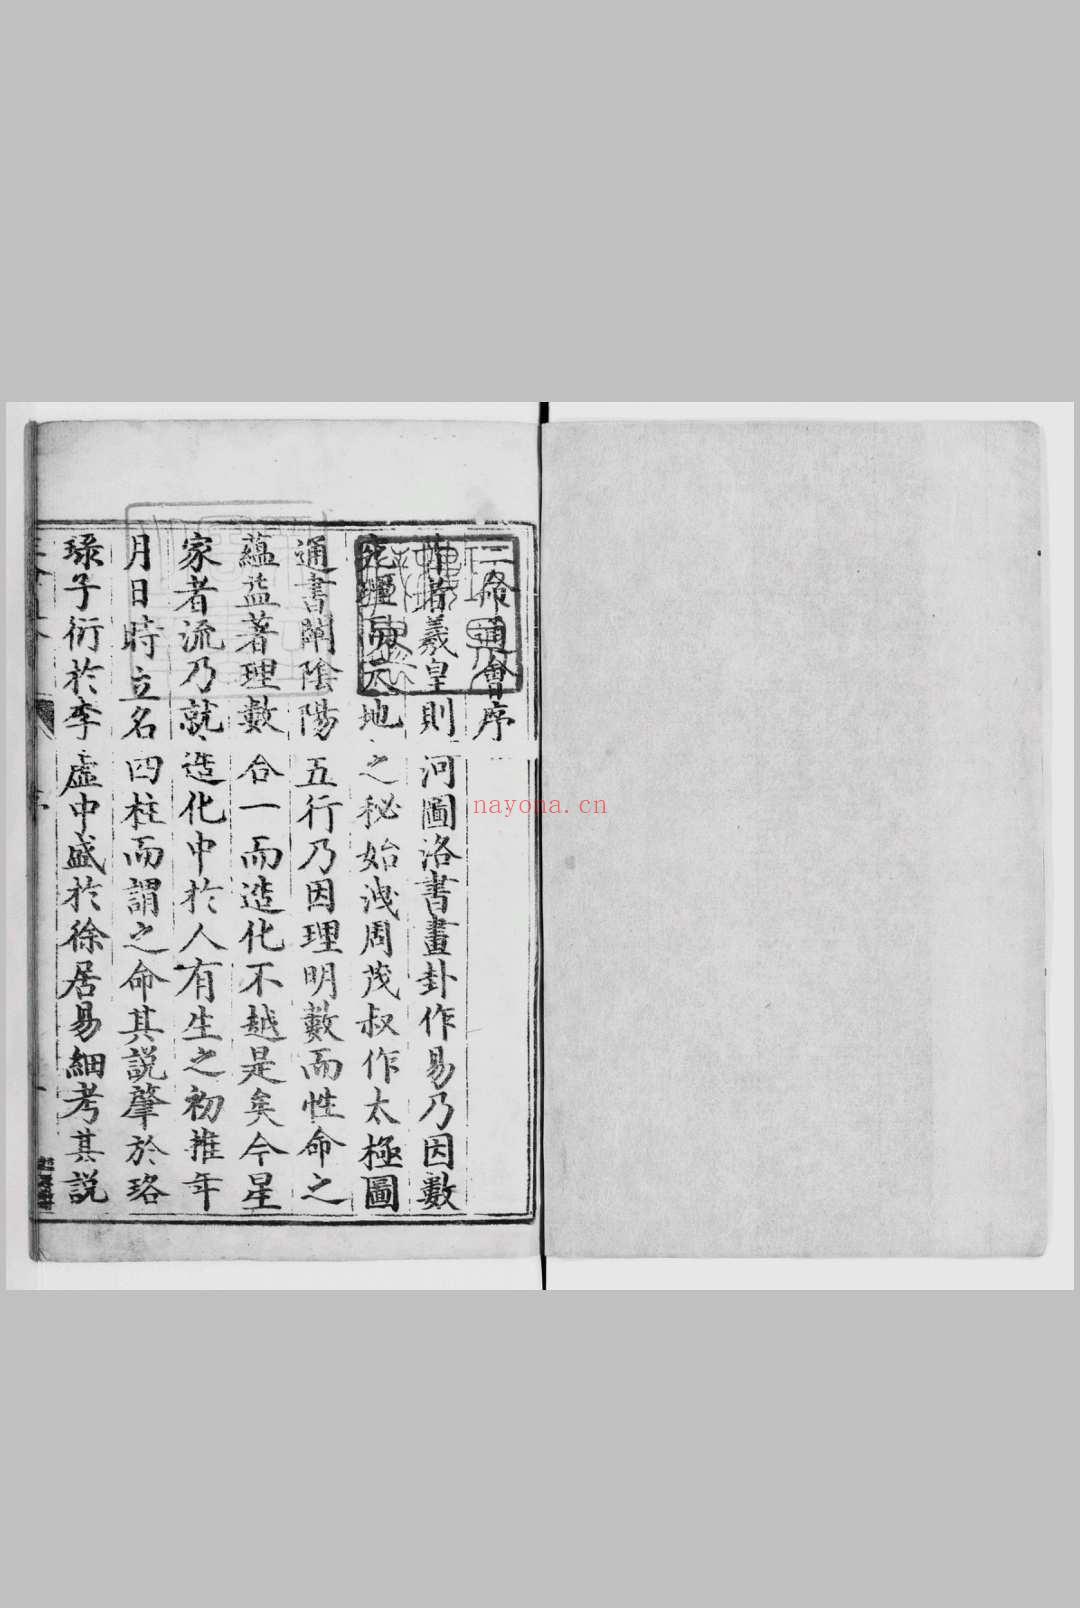 三命通會序
昔者羲皇則河圖洛書畫卦作易乃因數
究理而天地之秘始洩周茂叔作太極圖
通書闡陰陽五行乃因理明數而性命之
蘊益著理數合一而造化不越是矣今星
家者流乃就造化中於人有生之初推年
月日時立名四柱而謂之命其説肇於珞
琭子衍於李虛中盛於徐居易細考其説
序
nayona.cn